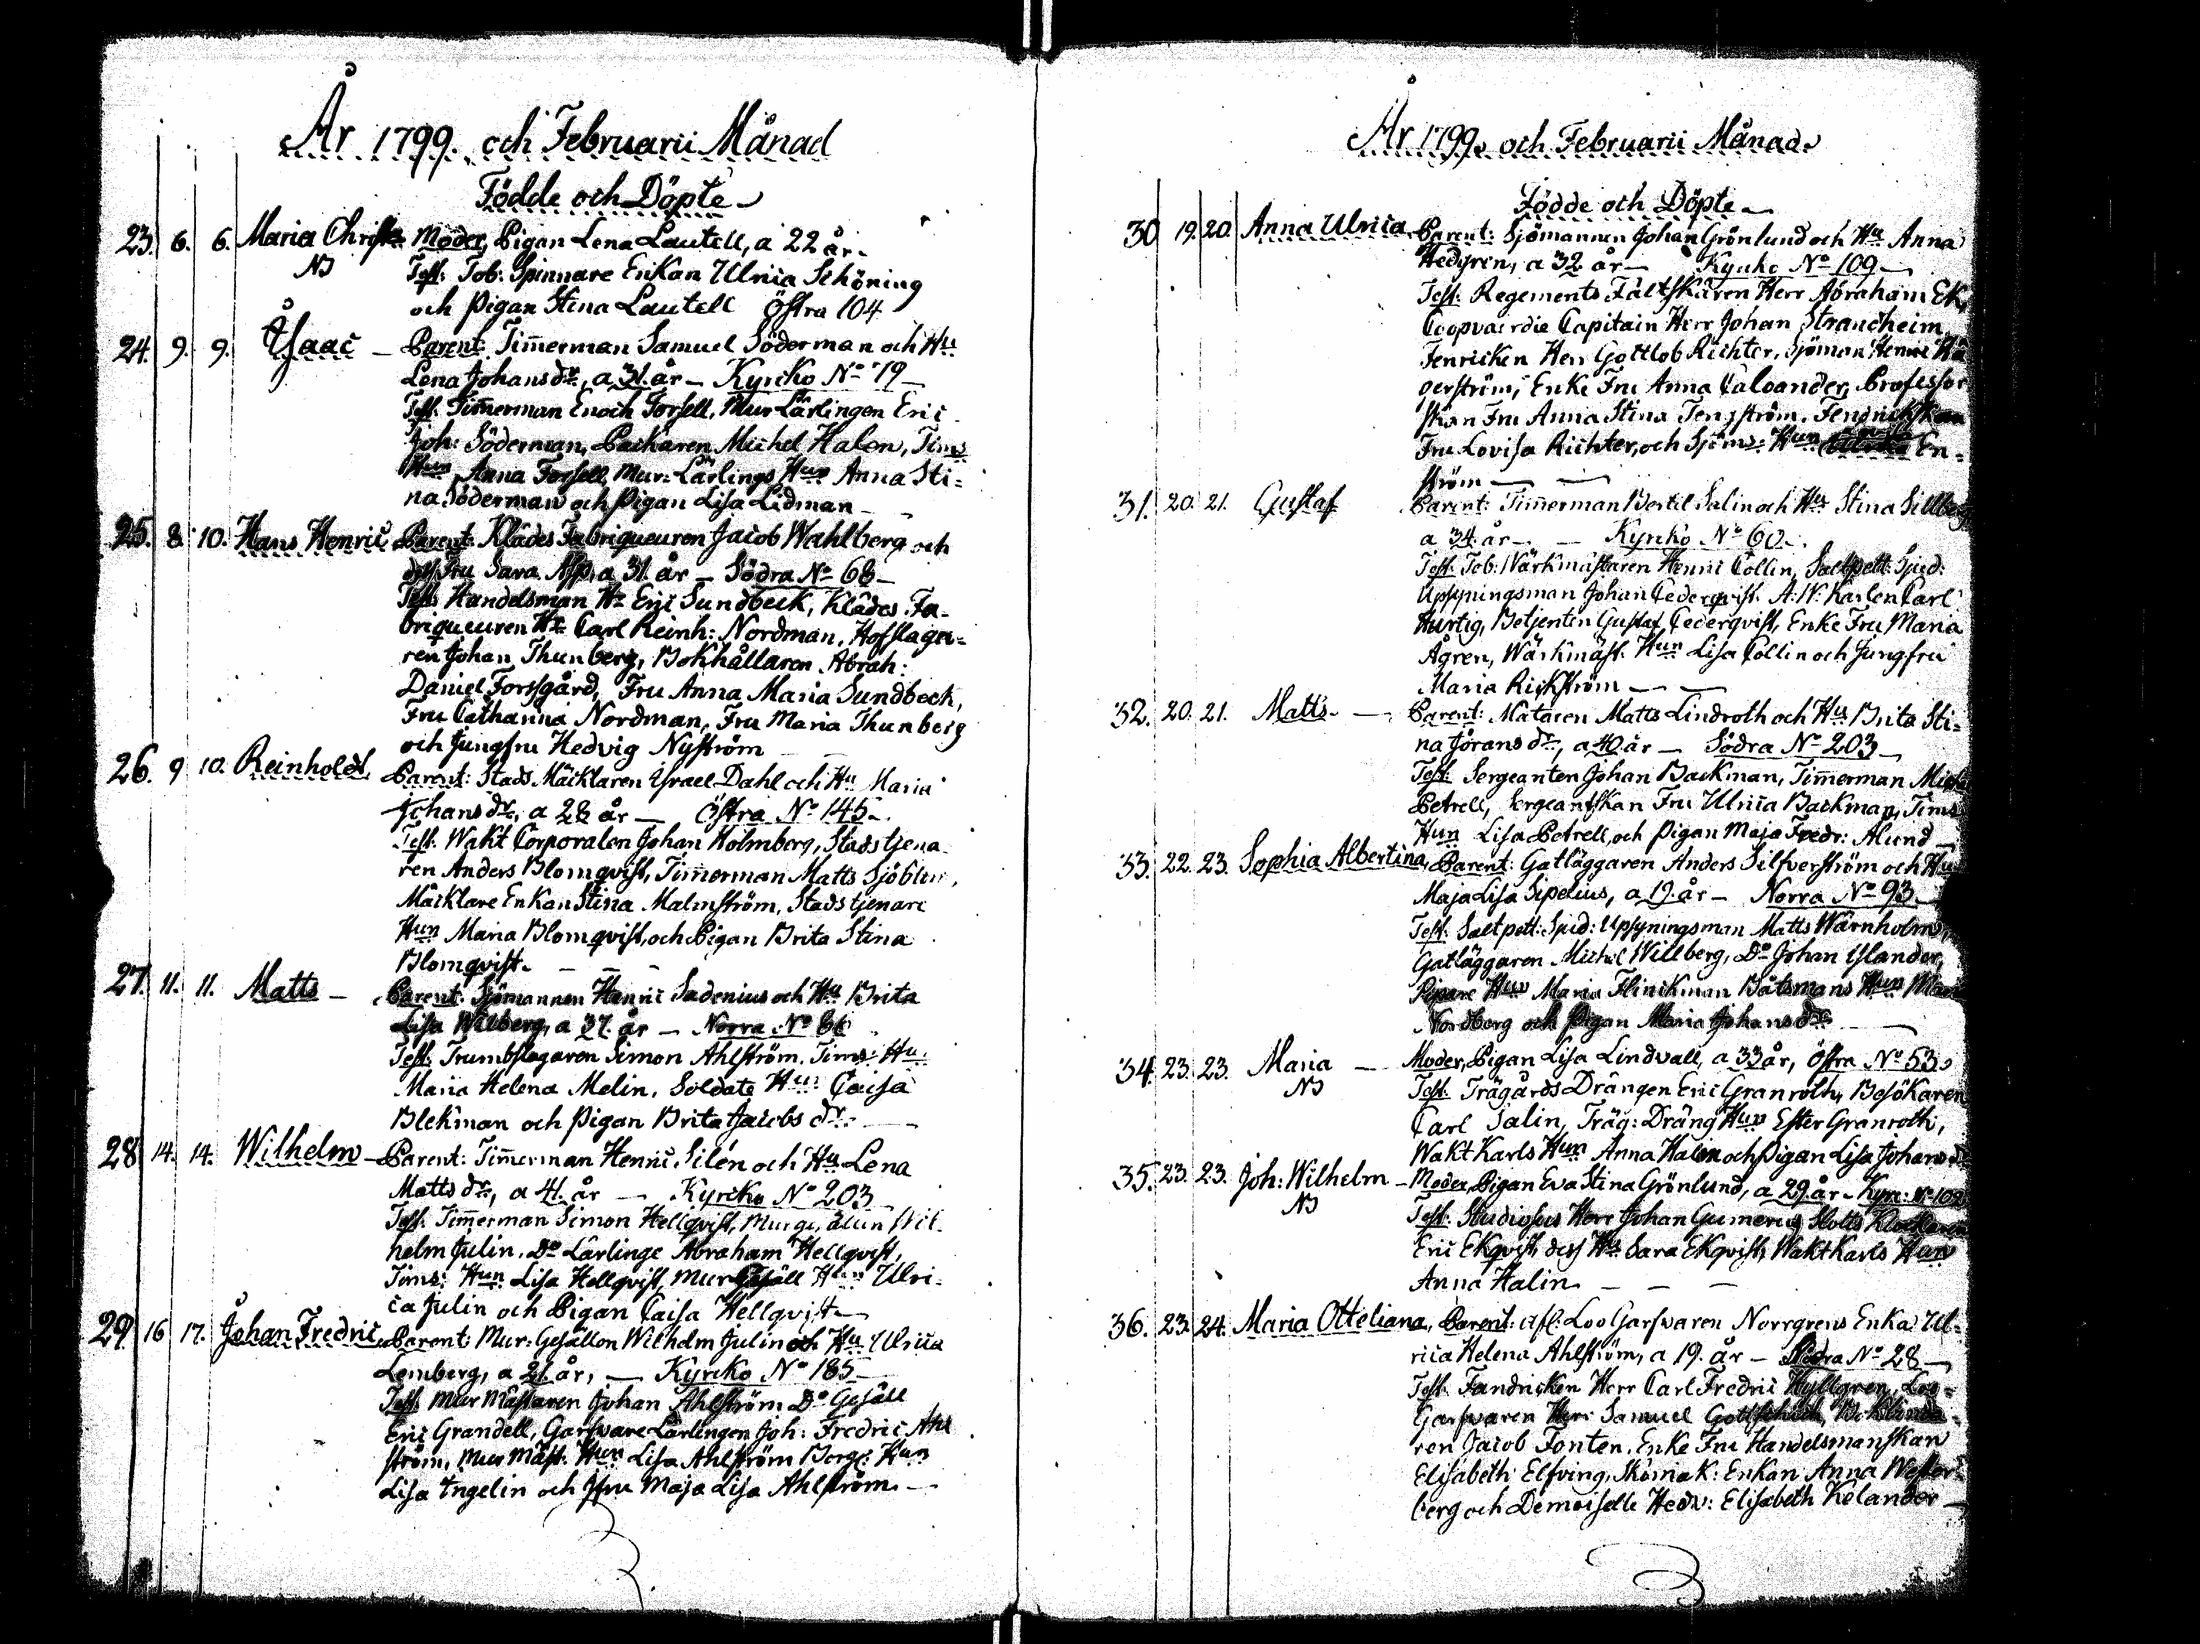 År 1799. och Februarii Månad
Födde och Döpte
23. 6. 6. Maria Christ. Moder, Pigan Lena Lautell, a 22 år.
NB Test. Tob: Spinnare Enkan Ulrica Schöning
och Pigan Stina Lautell Östra 104
24. 9. 9. Isaac Parent: Timmerman Samuel Söderman och Hu
Lena Johansdr, a 31. år - Kyrko No 19
Test. Timmerman Enoch Forsell, Mur Lärlingen Eric
Joh: Söderman, Packaren Michel Halen, Tims
Hun Anna Forsell Mur: Lärlings Hun Anna Sti=
na Söderman och Pigan Lisa Lidman
25. 8. 10. Hans Henric Parent: Klädes Fabriqueuren Jacob Wahlberg och
dess Fru Sara Asp, a 31. år - Södra No 68 -
Test. Handelsman Hr Eric Sundbeck, Klädes Fa-
briqueuren Hr Carl Reinh: Nordman, Hofslaga=
ren Johan Thunberg, Bokhållaren Abrah:
Daniel Forssgård, Fru Anna Maria Sundbeck,
Fru Catharina Nordman, Fru Maria Thunberg
och Jungfru Hedvig Nyström
26. 9 10. Reinhold, Parent: Stads Mäcklaren Israel Dahl och Hu Maria
Johansdr, a 28 år - Östra No 145.
Test. Wakt Corporalen Johan Holmberg, Stadstjena-
ren Anders Blomqvist, Timmerman Matts Sjöblom,
Mäcklare Enkan Stina Malmström, Stadstjenare
Hun Maria Blomqvist, och Pigan Brita Stina
Blomqvist.
27. 11. 11. Matts - Parent: Sjömannen Henric Sadenius och Hu Brita
Lisa Wilberg, a 37. år - Norra No 66
Test. Trumbslagaren Simon Ahlström, Tims: Hu.
Maria Helena Melin, Soldate Hun Caisa
Blekman och Pigan Brita Jacobs dr.
28 14. 14. Wilhelm - Parent: Timmerman Henric Silén och Hu Lena
Matts dr, a 41. år - Kyrko No 203
Test. Timmerman Simon Hellqvist, Murge, älun Wil-
helm Julin. Do Lärlinge Abraham Hellqvist,
Tims: Hun Lisa Hellqvist, Mur Gesäll Hun Ulri-
ca Julin och Pigan Caisa Hellqvist
29. 16 17. Johan Fredric Parent: Mur: Gesällen Wilhelm Julin och Hu Ulrica
Lemberg, a 21. år, - Kyrko No 185
Test. Mur Mästaren Johan Ahlström Do Gesäll
Eric Grandell, Garfvare Lärlingen Joh: Fredric Ahl
ström, Mur Mäst. Hun Lisa Ahlström Borg: Hun
Lisa Engelin och Jfru Maja Lisa Ahlström.
År 1799. och Februarii Månad.
Födde och Döpte
30 19. 20 Anna Ulrica Parent: Sjömannen Johan Grönlund och Hu Anna
Hedgren, a 32 år - Kyrko No 109
Test. Regements Fältskären Herr Abraham Ek,
Coopvaerdie Capitain Herr Johan Strandheim
Fenricken Herr Gottlob Richter, Sjöman Henric Hä
gerström, Enke Fru Anna Caloander, Professor
skan Fru Anna Stina Tengström, Fendrickskan
Fru Lovisa Richter, och Sjöms: Hun En-
ström
31. 20. 21. Gustaf Parent: Timmerman Bertil Salin och Hu Stina Sillberg
a 34. år - Kyrko No 60.
Test. Tob: Wärkmästaren Henric Collin, Saltpett: Sjud:
Upsyningsman Johan Cederqvist. A: W: Karlen Carl
Hurtig, Betjenten Gustaf Cederqvist, Enke Fru Maria
Ågren, Wärkmäst. Hun Lisa Collin och Jungfru
Maria Rickström
32. 20. 21. Matts. - Parent: Mätaren Matts Lindroth och Hu Brita Sti=
na Jörans dr, a 40 år - Södra No 203
Test. Sergeanten Johan Backman, Timmerman Mich
Petrell, Sergeantskan Fru Ulrica Backman, Tims
Hun Lisa Petrell, och Pigan Maja Fredr: Alund
33. 22. 23. Sophia Albertina, Parent: Gatläggaren Anders Silfverström och Hu
Maja Lisa Sipelius, a 19. år - Norra No 93
Test. Saltpett: Sjud: Upsyningsman Matts Wärnholm,
Gatläggaren Michel Willberg, Do Johan Islander,
Pipare Hun Maria Flinckman Båtsmans Hun Mari
Nordberg och Pigan Maria Johans dr.
34 23. 23. Maria - Moder, Pigan Lisa Lindvall, a 33 år, Östra No 53.
NB Test. Trägårds Drängen Eric Granroth, Besökaren
Carl Salin, Träg: Dräng Hun Ester Granroth,
Wakt Karls Hun Anna Halin och Pigan Lisa Johans dr
35. 23. 23. Joh: Wilhelm - Moder, Pigan Eva Stina Grönlund, a 29. år - Kyrc: No 109
NB Test. Studiosus Herr Johan Gumerus Slotts Klockaren
Eric Ekqvist, dess Hu Sara Ekqvist, Wakt Karls Hun
Anna Halin
36. 23. 24. Maria Otteliana, Parent: Afl: Loo Garfvaren Norrgrens Enka Ul-
rica Helena Ahlström, a 19. år - Södra No 28
Test. Fandricken Herr Carl Fredric Hyllgren, Loo=
Garfvaren Herr Samuel
ren Jacob Fonten, Enke Fru Handelsmanskan
Elisabeth Elfving, Skomak: Enkan Anna Wester-
berg och Demoiselle Hedv: Elisabeth Kelander